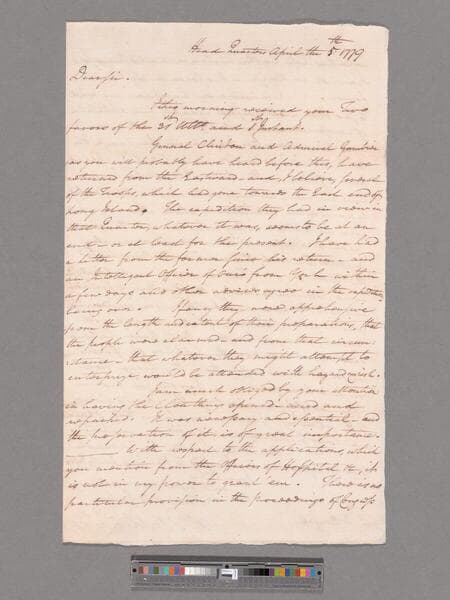 Head Quarters April the 5th 1779
Dear sir.
I this morning received your Two
favors of the 31 Ulto. and Instant.
General Clinton and Admiral Gambier
as you will probably have heard before this, have
returned from the Eastward and, I believe, several
of the Troops, which had gone towards the East end of
Long Island. The expedition they had in view in
that Quarter, whatever it was, seems to be at an
end or at least for the present. I have had
a letter from the former since his return and
an Intelligent Officer of ours from within
a few days and other advices agree in the
being over. they were apprehensive
from the length and extent of their preparations, that
the people were alarmed and from that circum-
stance that whatever they might attempt to
enterprize would be attended with hazard
I am much obliged by your attention
in having the Cloathing opened aired and
repacked. It was necessary and essential and
the preservation of it is of great importance.
With respect to the applications, which
you mention from the Officers of Hospital &c, it
is not in my power to grant 'em. There is no
particular provision in the proceedings of Congress